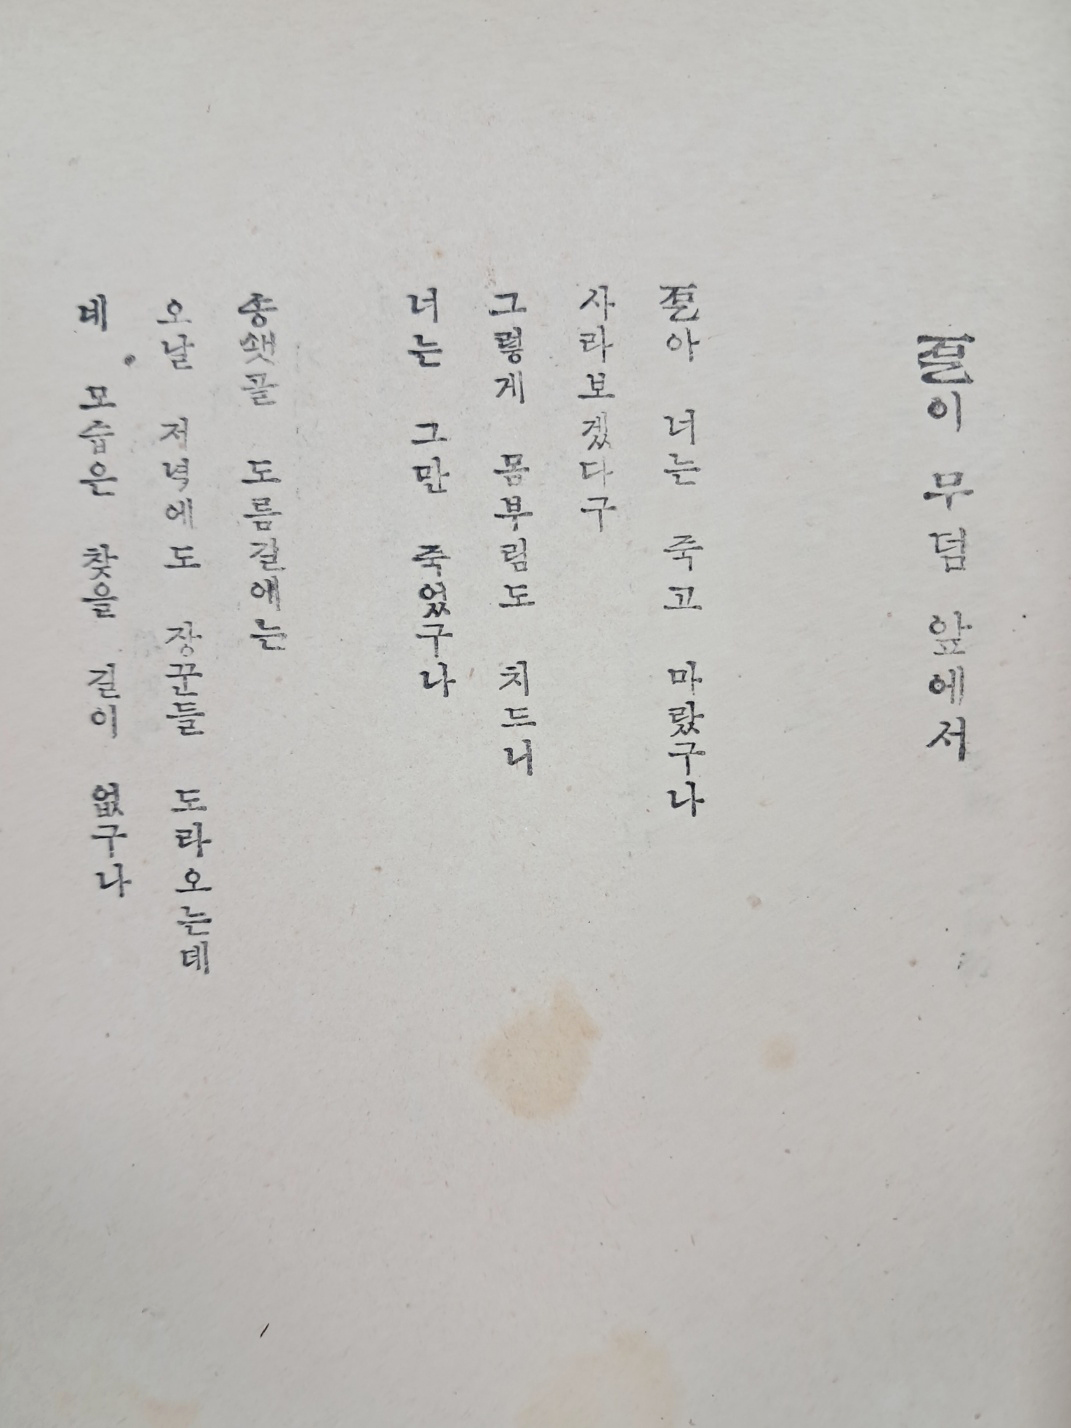 乭이 무덤 앞에서
乭아 너는 죽고 마랐구나
사라보겠다구
그렇게 몸부림도 치드니
너는 그만 죽었구나
송샛골 도름길에는
오날 저녁에도 장꾼들 도라오는데
네 모습은 찾을 길이 없구나